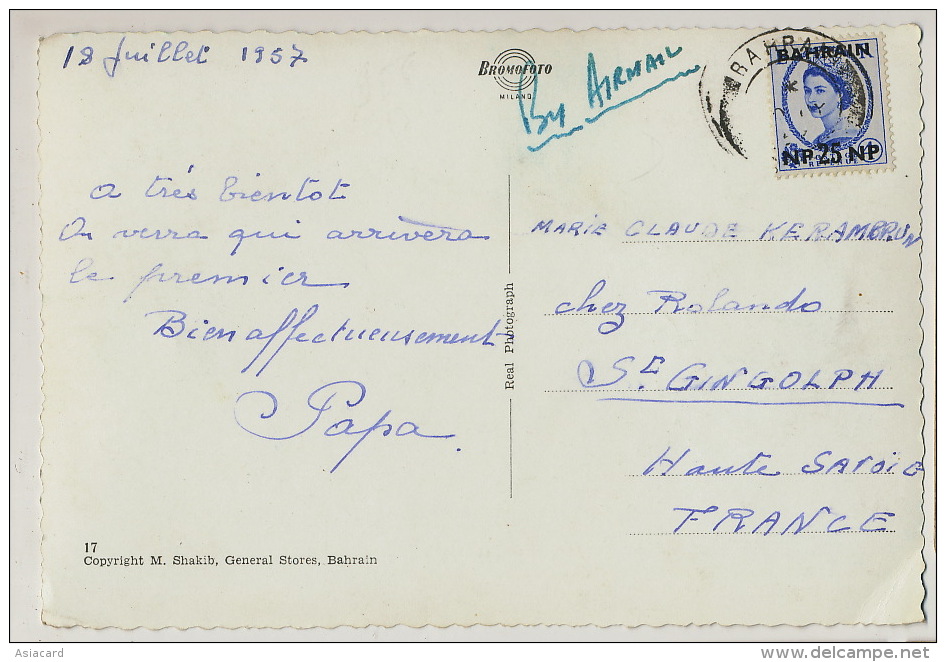 18 Juillet 1957
BROMOFOTO
MILANO
By AIRMAIL
BAHRA
BAHRAIN
NP 25 NP
a très bientot
On verra qui arrivera
le premier
Bien affectueusement
Papa.
Real Photograph
MARIE CLAUDE KERAMBRUN
chez Rolando
St. GINGOLPH
Haute SAVOIE
FRANCE
17
Copyright M. Shakib, General Stores, Bahrain
Asiacard
www.delcampe.net